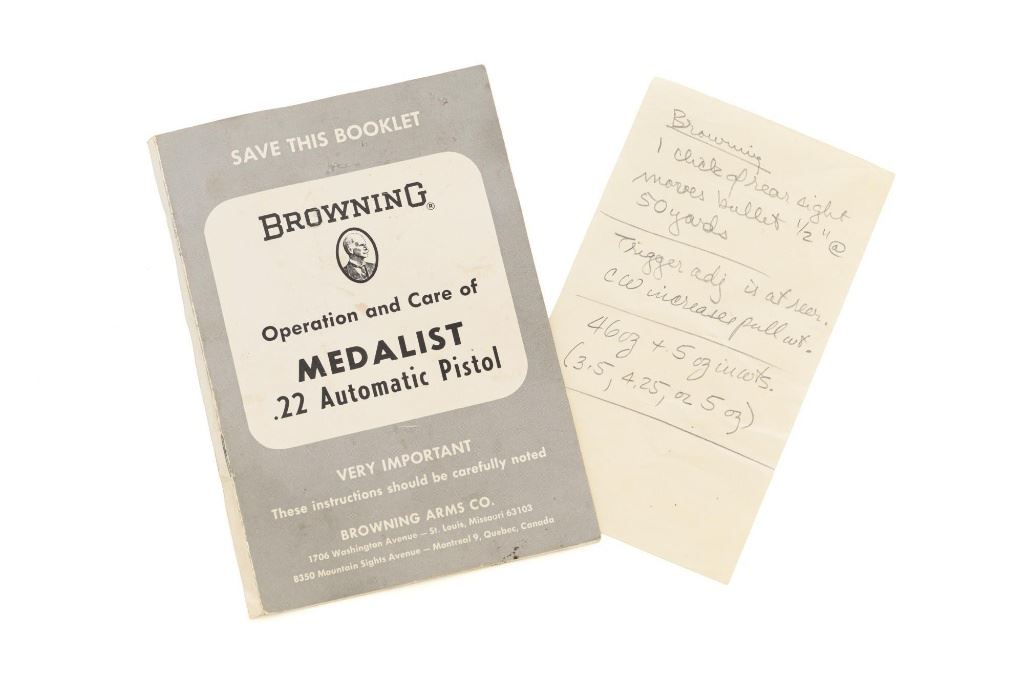 SAVE THIS BOOKLET
BROWNING®
Operation and Care of
MEDALIST
.22 Automatic Pistol
VERY IMPORTANT
These instructions should be carefully noted
BROWNING ARMS CO.
1706 Washington Avenue — St. Louis, Missouri 63103
8350 Mountain Sights Avenue — Montreal 9, Quebec, Canada
Browning
1 click of rear sight
moves bullet 1/2" @
50 yards
Trigger adj is at rear.
CW increases pull wt.
46oz + .5 oz in wts.
(3.5, 4.25, or 5 oz)